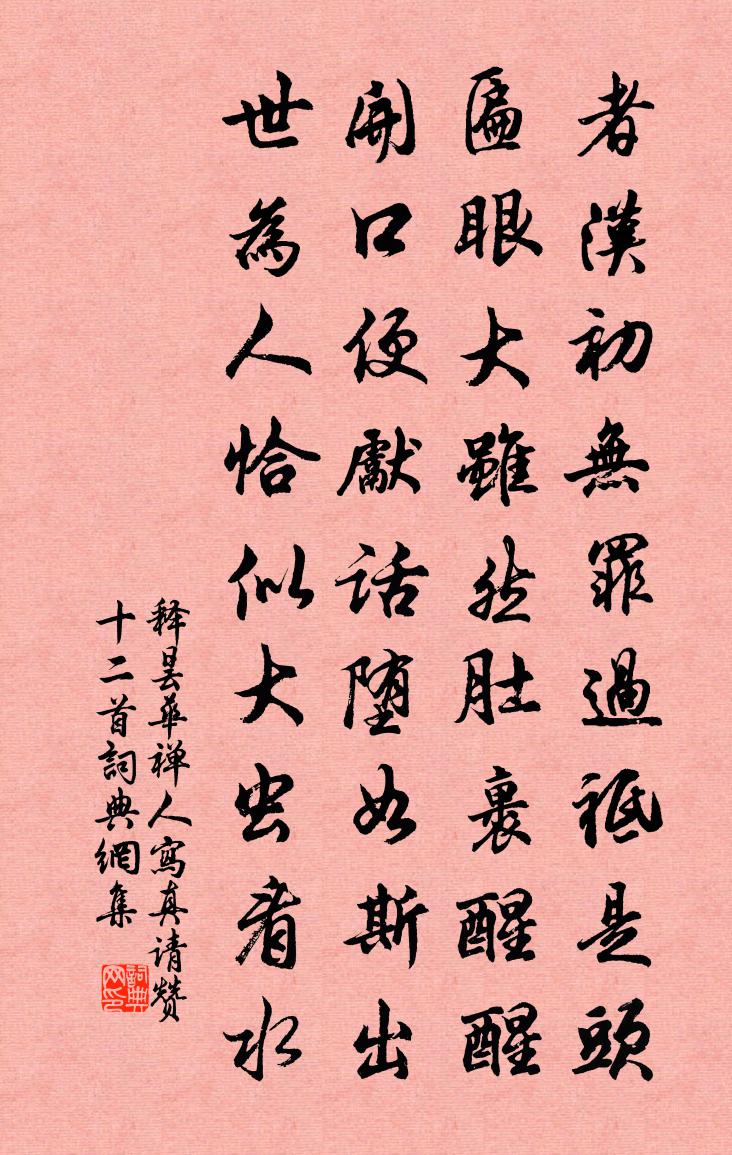 者漢初無罪過祗是頭
匾眼大雖然肚裏醒醒
開口便獻話墮如斯出
世為人恰似大虫看水
释曇華禅人寫真请赞
十二首詞典網集
詞典网印